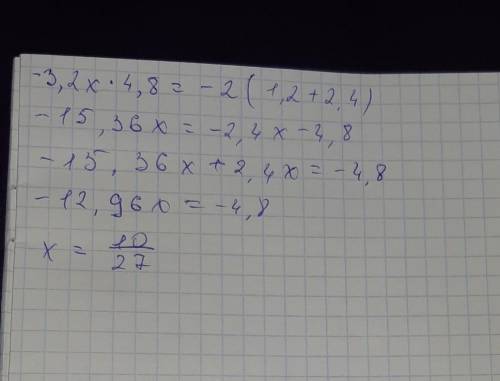 -3,2x · 4,8 = -2 (1,2 + 2,4)
-15,36x = -2,4x - 4,8
-15,36x + 2,4x = -4,8
-12,96x = -4,8
x = 10/27